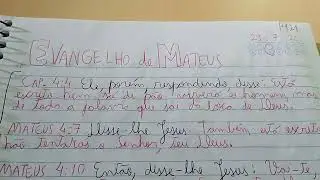 EVANGELHO de MATEUS
Cap. 4.4 Ele, porém, respondendo, disse: Está
escrito: Nem só de pão viverá o homem, mas
de toda a palavra que sai da boca de Deus.
MATEUS 4:7 Disse-lhe Jesus: Também está escrito:
Não tentarás o Senhor, teu Deus.
MATEUS 4:10 Então, disse-lhe Jesus: Vai-te,